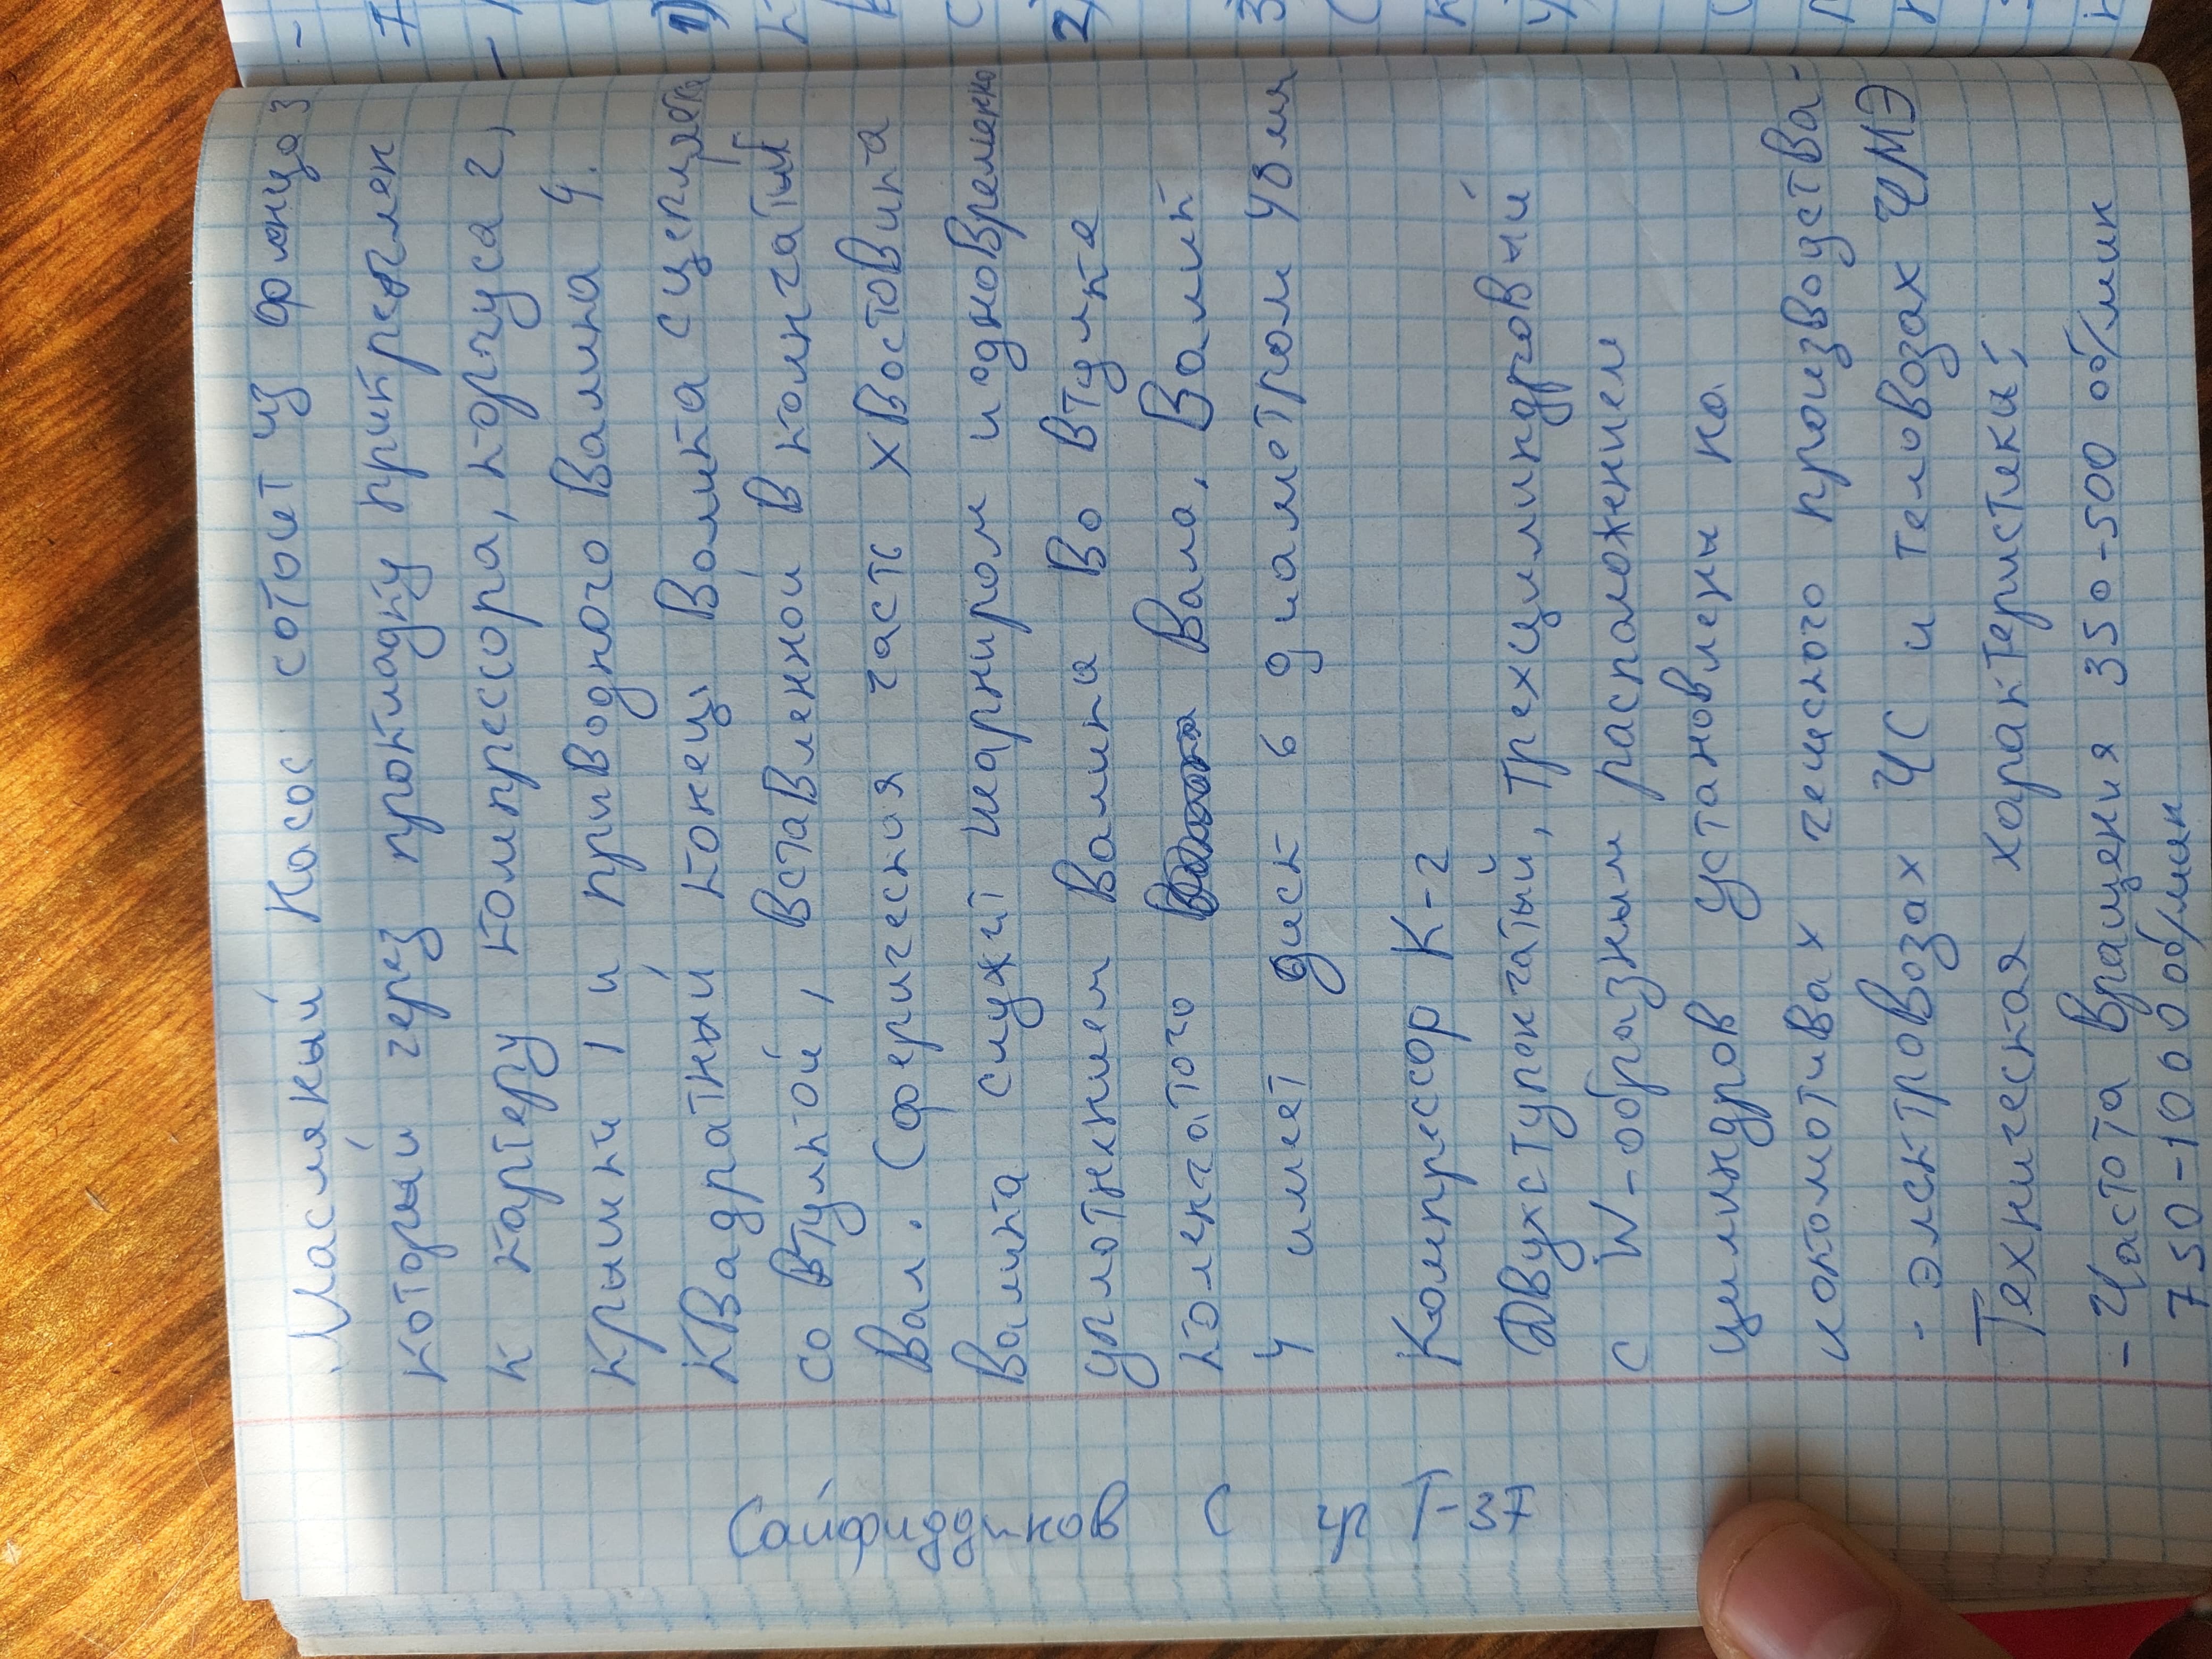 Масляный Насос сотоет из фланца 3
который через прокладку прикреплен
к картеру компрессора, корпуса 2,
крышки 1 и приводного валика 4.
Квадратный конец валика сцепляется
со втулкой, вставленной в коленчатый
вал. Сферическия часть хвостовика
валика служит шарниром и одновременно
уплотнением валика во втулке
коленчатого вала. Валик
4 имеет диск 6 диаметром 48 мм
Компрессор К-2
Двухступенчатый, трехцилиндровый
с W-образным расположением
цилиндров установлены на
локомотивах чешского производства-
- электровозах ЧС и тепловозах ЧМЭ
Техническая характеристики;
- Частота вращения 350-500 об/мин
750-1000 об/мин
Сайфиддинов С гр Т-37
7
1)
2)
3